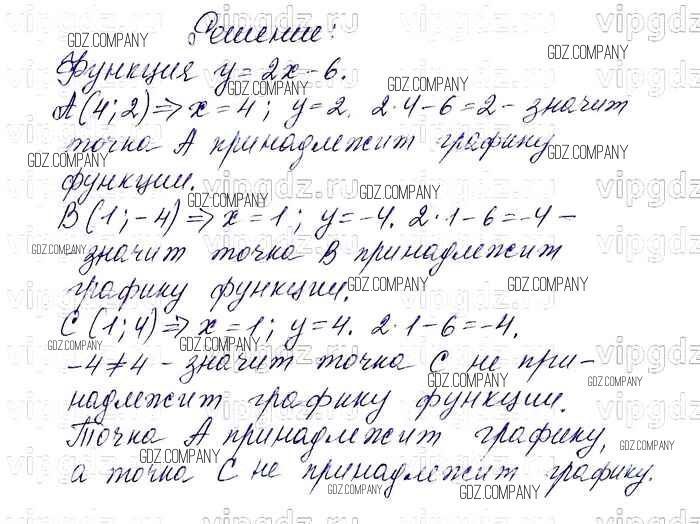 Решение:
Функция y = 2x - 6.
A (4; 2) => x = 4; y = 2. 2·4 - 6 = 2 - значит
точка A принадлежит графику
функции.
B (1; -4) => x = 1; y = -4. 2·1 - 6 = -4 -
значит точка B принадлежит
графику функции.
C (1; 4) => x = 1; y = 4. 2·1 - 6 = -4.
-4 ≠ 4 - значит точка C не при-
надлежит графику функции.
Точка A принадлежит графику,
а точка C не принадлежит графику.